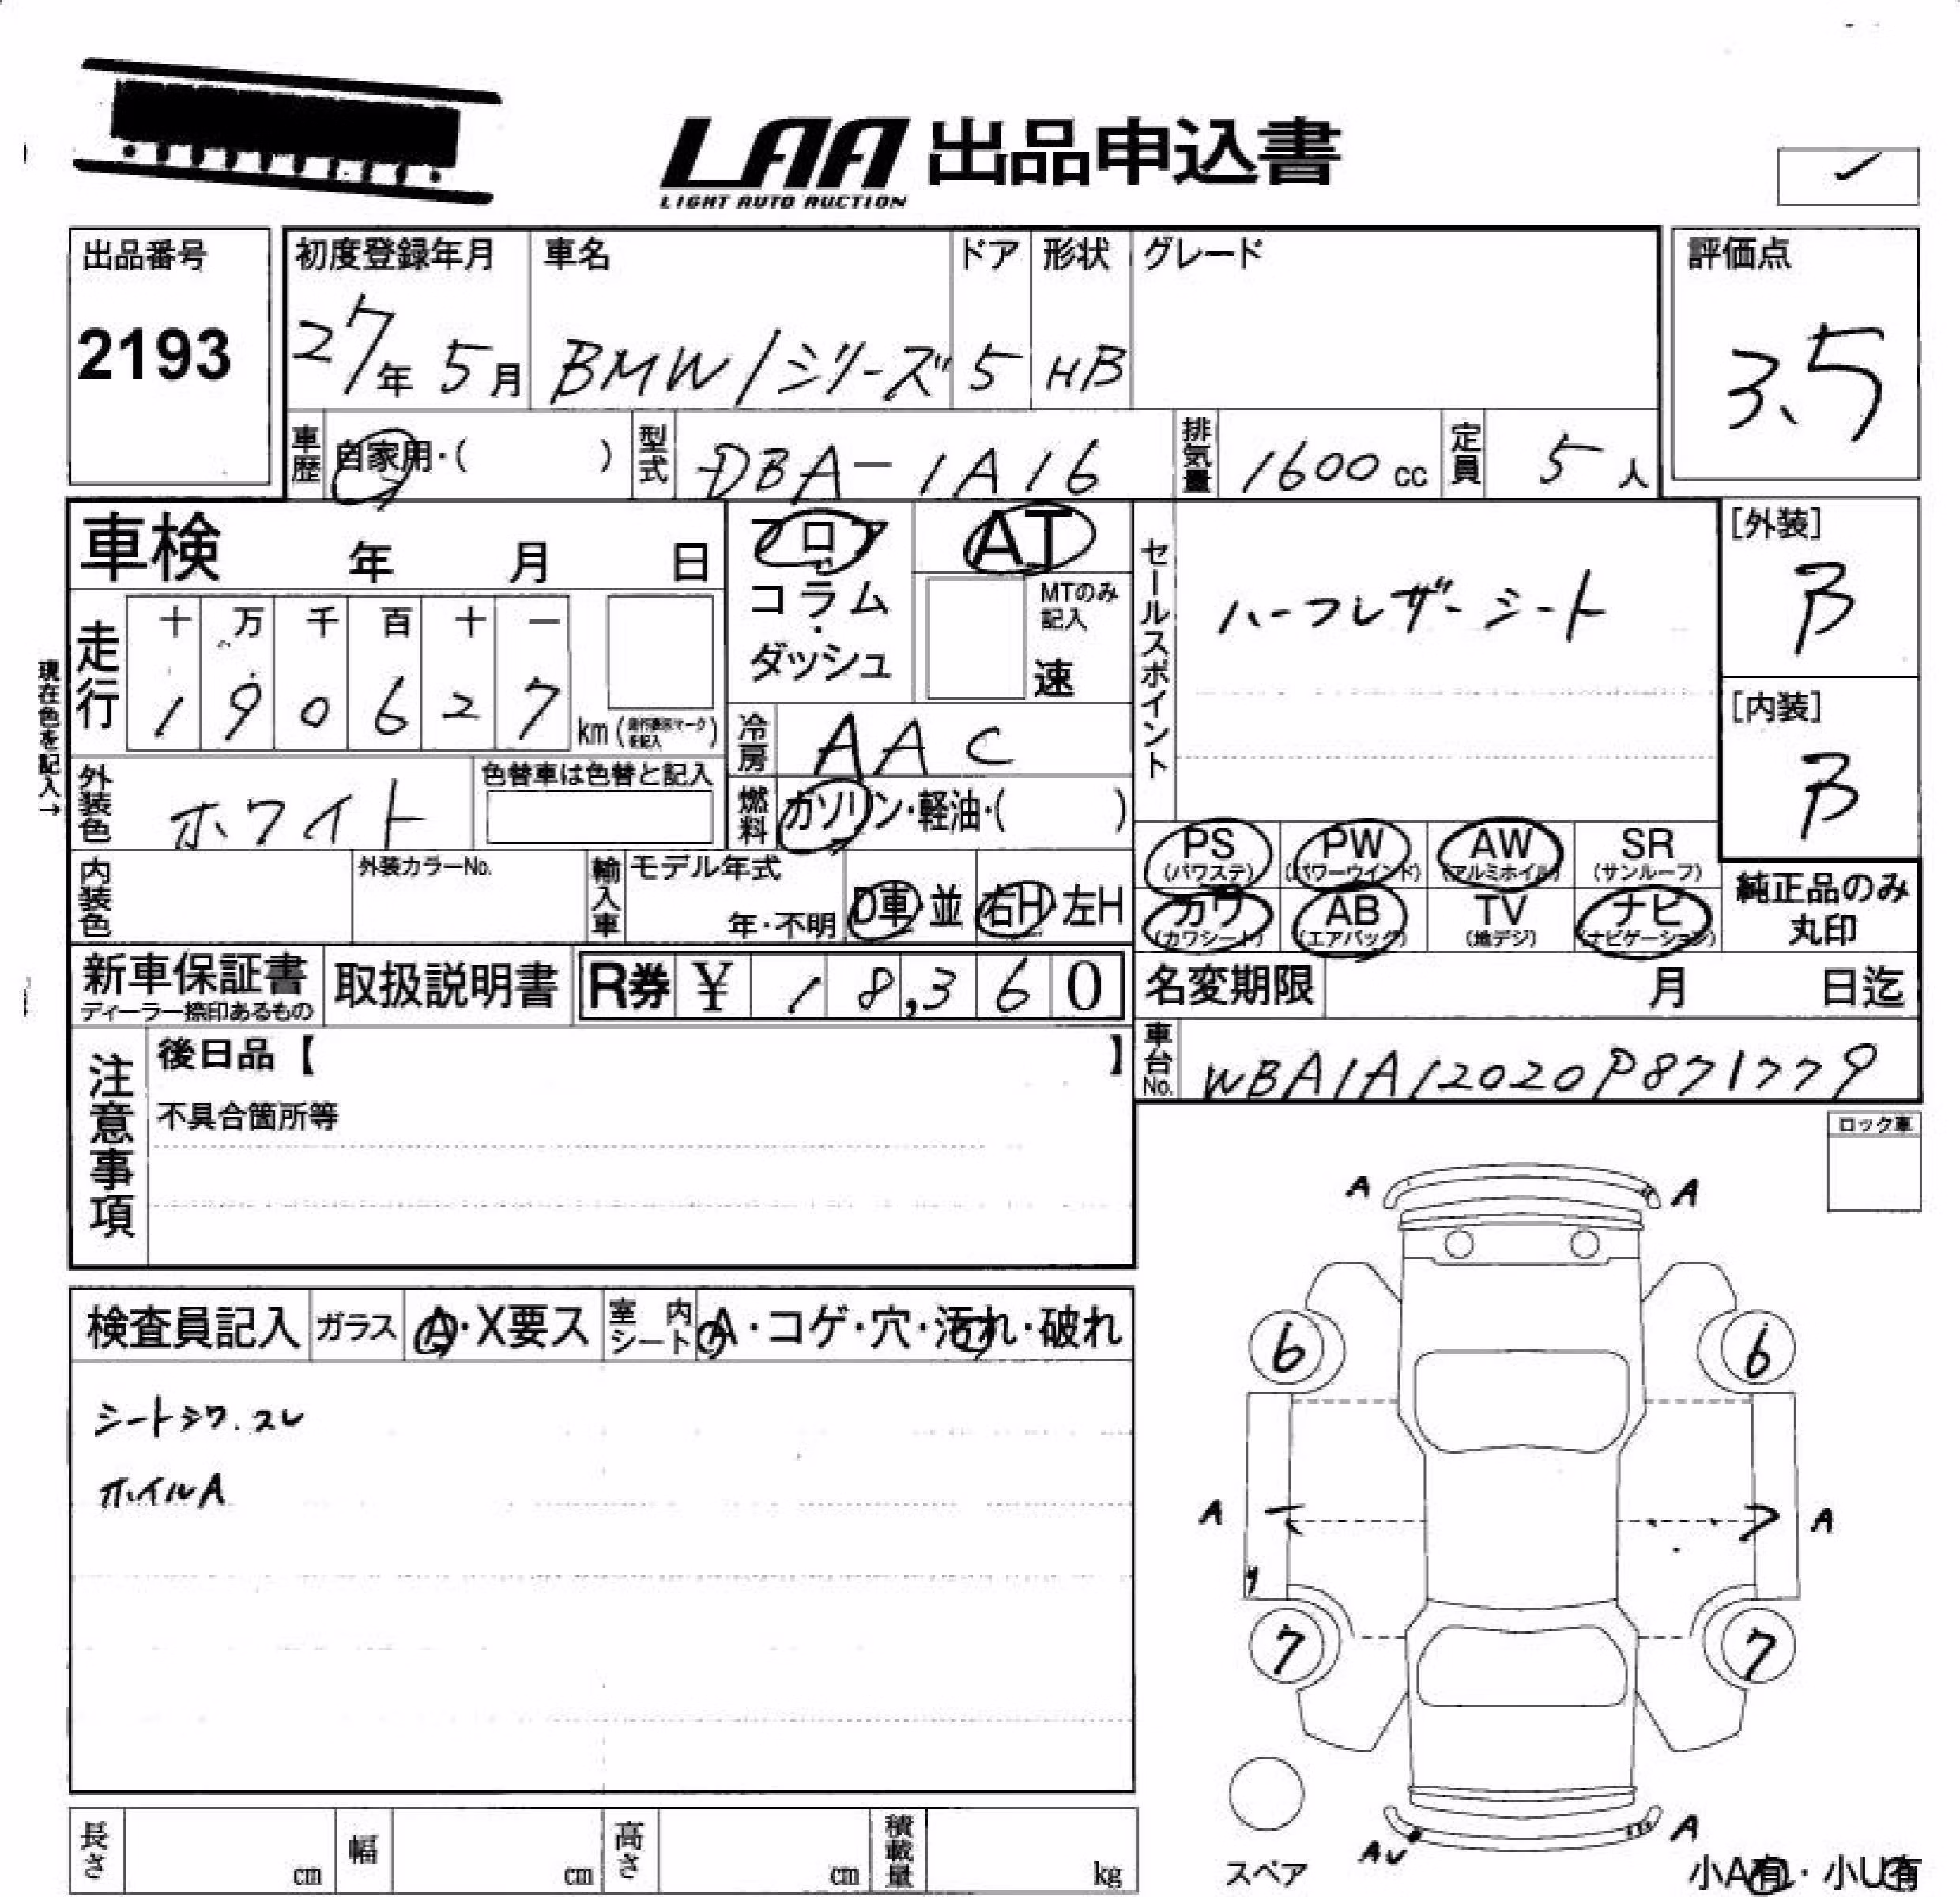 LAA 出品申込書
LIGHT AUTO AUCTION
出品番号
2193
初度登録年月
27年5月
車名
BMW1シリーズ
ドア
5
形状
HB
グレード
評価点
3.5
車歴
自家用・( )
型式
DBA-1A16
排気量
1600cc
定員
5人
車検 年 月 日
フロア
コラム
・
ダッシュ
AT
MTのみ
記入
速
セールスポイント
ハーフレザーシート
[外装]
B
[内装]
B
現在色を記入→
走行
十 万 千 百 十 一
1 9 0 6 2 7
km
冷房
AAC
外装色
ホワイト
色替車は色替と記入
燃料
ガソリン・軽油・( )
PS
(パワステ)
PW
(パワーウインド)
AW
(アルミホイル)
SR
(サンルーフ)
カワ
(カワシート)
AB
(エアバッグ)
TV
(地デジ)
ナビ
(ナビゲーション)
純正品のみ
丸印
内装色
外装カラーNo.
輸入車
モデル年式
年・不明
D車・並
右H・左H
新車保証書
ディーラー捺印あるもの
取扱説明書
R券 ¥ 18,360
名変期限 月 日迄
車台No.
WBA1A12020P871779
注意事項
後日品【 】
不具合箇所等
ロック車
検査員記入
ガラス
A・X要ス
室内
シート
A・コゲ・穴・汚れ・破れ
シートシワ.スレ
ホイルA
A
A
6
6
A
A
7
7
スペア
A
小A有・小U有
長さ cm
幅 cm
高さ cm
積載量 kg